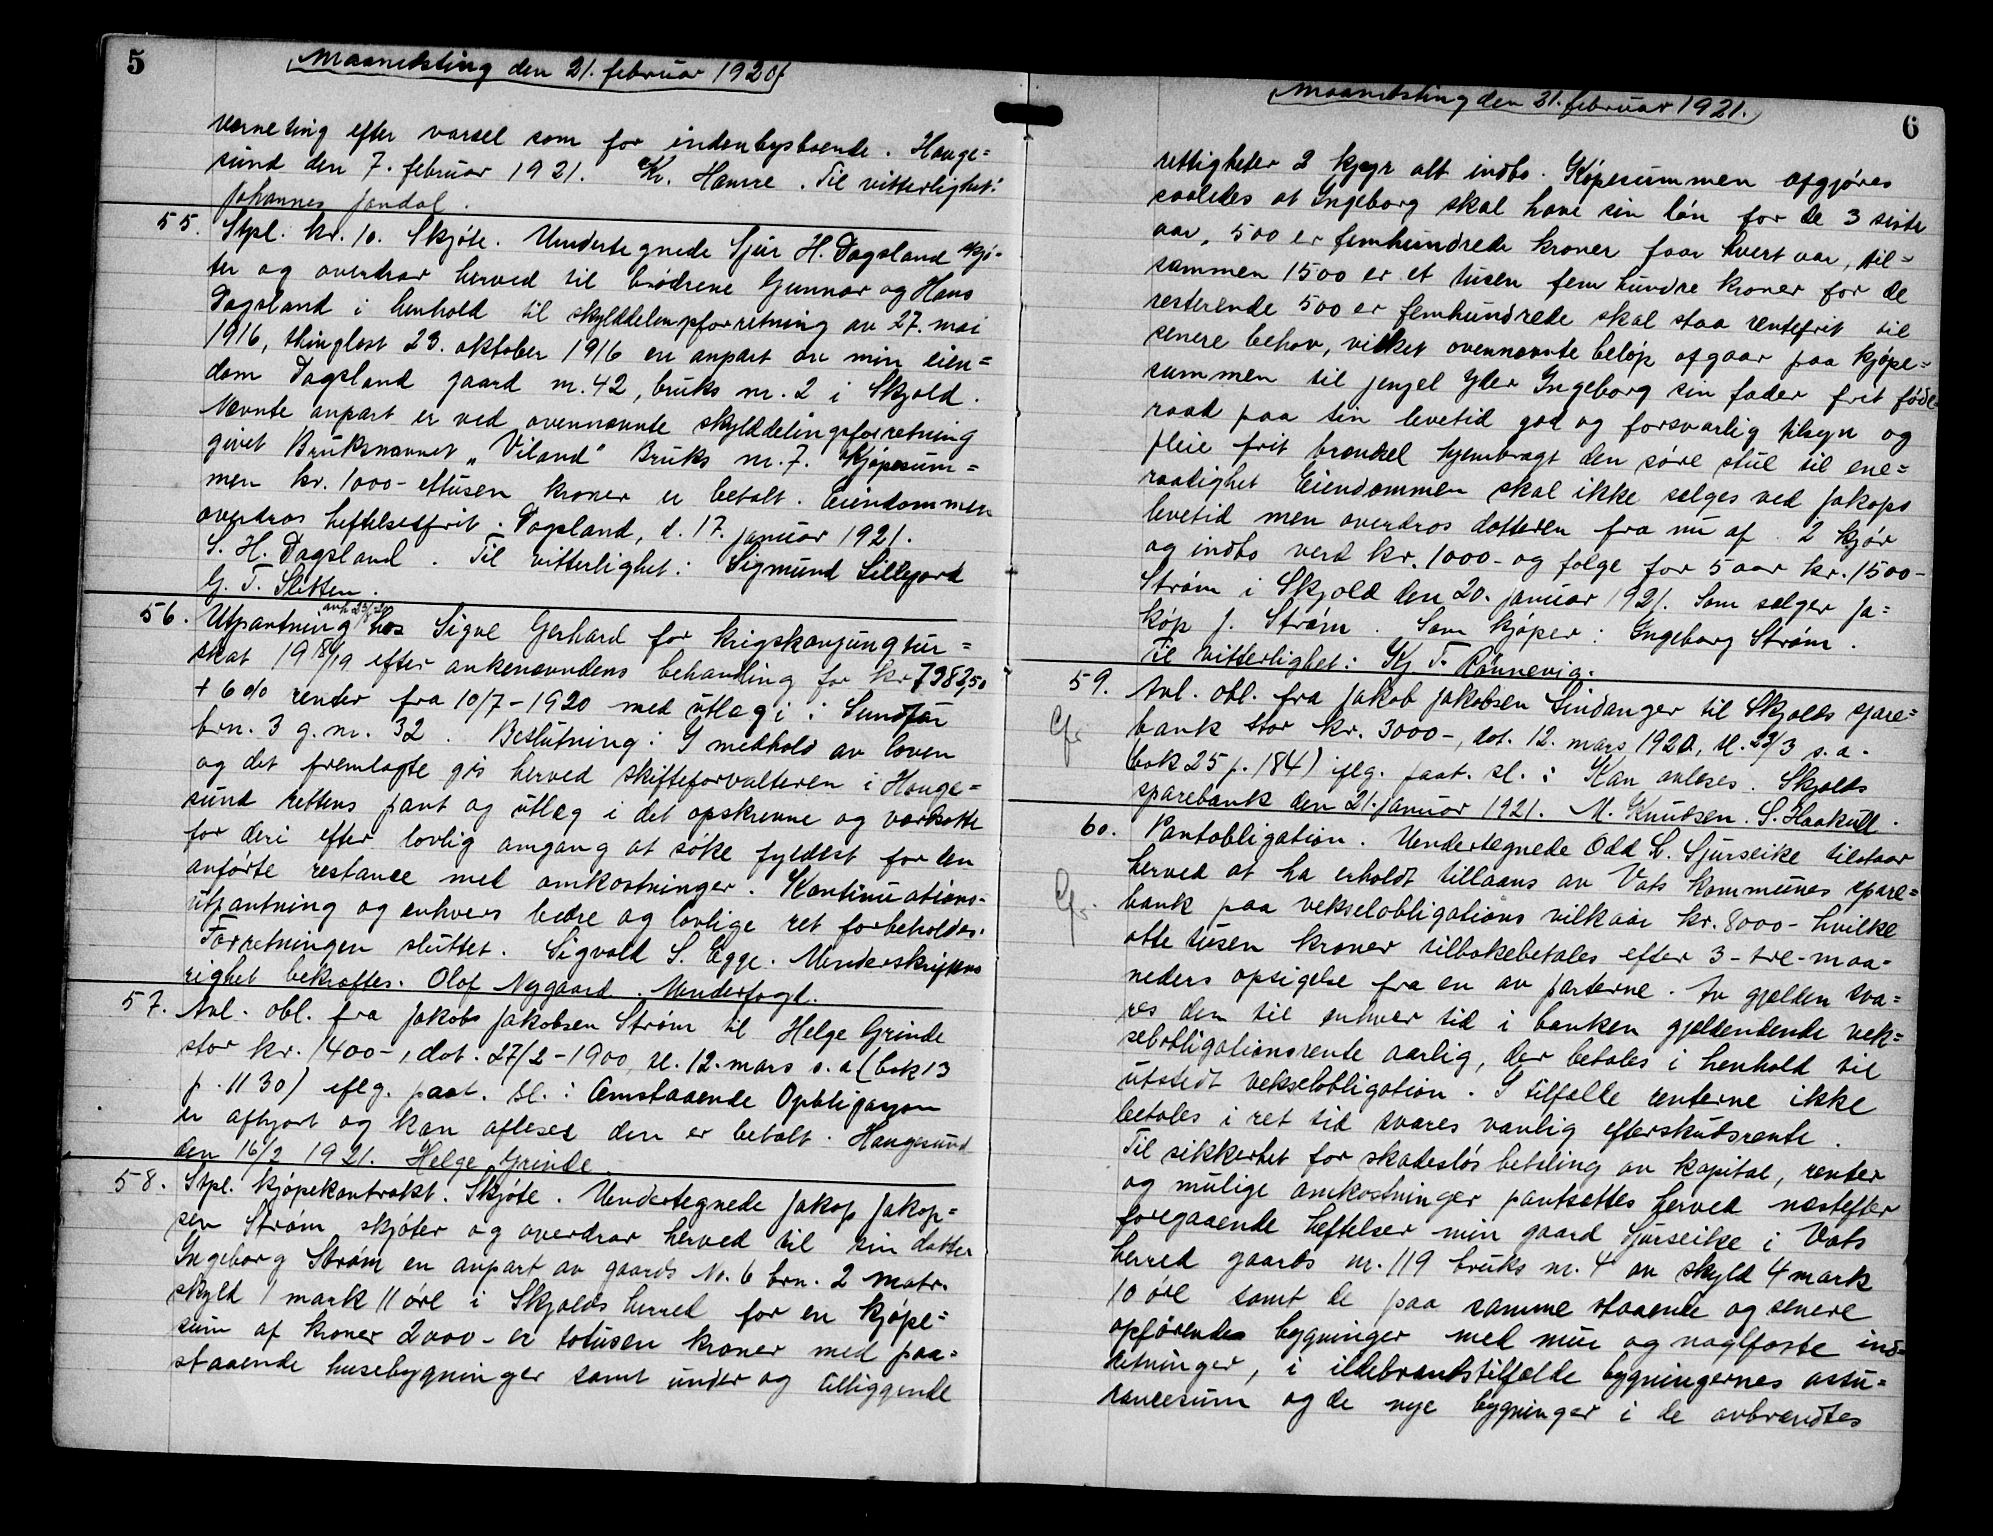 5
Maanedsting den 21. februar 1921
verneting efter varsel som for indenbysboende. Hauge=
sund den 7. februar 1921. Kr. Hamre. Til vitterlighet:
Johannes Jondal.
55. Stpl. kr. 10. Skjøte. Undertegnede Sjur H. Dagsland skjø-
ter og overdrar herved til brødrene Gunnar og Hans
Dagsland i henhold til skylddelingsforretning av 27. mai
1916, thinglæst 23. oktober 1916 en anpart av min eien=
dom Dagsland gaard nr. 42, bruks nr. 2 i Skjold.
Nævnte anpart er ved ovennævnte skylddelingsforretning
givet Bruksnavnet "Viland" Bruks nr. 7. Kjøpesum=
men kr. 1000- ettusen kroner er betalt. Eiendommen
overdras heftelsesfrit. Dagsland, d. 17. januar 1921.
S. H. Dagsland. Til vitterlighet: Sigmund Lillefjord
G. T. Sletten.
56. Utpantning hos Sigve Gerhard for krigskonjungtur=
skat 1918/19 efter ankenævndens behandling for kr. 7982,50
+ 6 o/o renter fra 10/7-1920 med utlæg i: Sundfør
brn. 3 g.nr. 32. Beslutning: I medhold av loven
og det fremlagte gis herved skifteforvalteren i Hauge=
sund rettens pant og utlæg i det opskrevne og værdsatte
for deri efter lovlig omgang at søke fyldest for den
anførte restance med omkostninger. Kontinuations-
utpantning og enhvers bedre og lovlige ret forbeholdes.
Forretningen sluttet. Sigvald S. Egge. Underskriftens
righet bekræftes. Olof Nygaard. Underfogd.
57. Avl. obl. fra Jakob Jakobsen Strøm til Helge Grinde
stor kr. 1400-, dat. 27/2-1900, tl. 12. mars s.a. (bok 13
p. 1130) iflg. paat. sl.: Omstaaende Opbligasjon
er afbjort og kan afleses den er betalt. Haugesund
den 16/2 1921. Helge Grinde.
58. Stpl. kjøpekontrakt. Skjøte. Undertegnede Jakop Jakop=
sen Strøm skjøter og overdrar herved til sin datter
Ingeborg Strøm en anpart av gaards No. 6 brn. 2 matr.
skyld 1 mark 11 øre i Skjolds herred for en kjøpe=
sum af kroner 2000- er totusen kroner med paa=
staaende husebygninger samt under og tilliggende
6
Maanedsting den 21. februar 1921.
rettigheter 2 kjyr alt indbo. Kjøpesummen afgjøres
saaledes at Ingeborg skal have sin løn for de 3 siste
aar, 500 er femhundrede kroner faar hvert aar, til=
sammen 1500 er et tusen fem hundre kroner for de
resterende 500 er femhundrede skal staa rentefrit til
senere behov, vilket ovennævnte beløp afgaar paa kjøpe=
summen til jengel yder Ingeborg sin fader frit føde=
raad paa sin levetid god og forsvarlig tilsyn og
pleie frit brændsel hjembragt den søre stue til ene=
raadighet Eiendommen skal ikke sælges ved Jakops
levetid men overdras datteren fra nu af. 2 kjør
og indbo verd kr. 1000- og følge for 5 aar kr. 1500-
Strøm i Skjold den 20. januar 1921. Som sælger Ja=
kop J. Strøm. Som kjøper: Ingeborg Strøm.
Til vitterlighet: Kj T. Rønnevig.
59. Avl. obl. fra Jakob Jakobsen Lindanger til Skjolds spare=
bank stor kr. 3000-, dat. 12. mars 1920, tl. 23/3 s.a.
(bok 25 p. 184) iflg. paat. sl.: Kan avlæses. Skjolds
sparebank den 21. januar 1921. M. Knutsen. S. Haakull.
60. Pantobligation. Undertegnede Odd L. Sjurseike tilstaar
herved at ha erholdt tillaans av Vats kommunes spare=
bank paa vekselobligations vilkaar kr. 8000- hvilke
otte tusen kroner tilbakebetales efter 3-tre-maa-
neders opsigelse fra en av parterne. Av gjælden sva=
res den til enhver tid i banken gjældendende vek=
selobligationsrente aarlig, der betales i henhold til
utstedt vekselobligation. I tilfælde renterne ikke
betales i ret tid svares vanlig efterskudsrente.
Til sikkerhet for skadesløs betaling av kapital, renter
og mulige omkostninger pantsættes herved næstefter
foregaaende heftelser min gaard Sjurseike i Vats
herred gaards nr. 119 bruks nr. 4 av skyld 4 mark
10 øre samt de paa samme staaende og senere
opførendes bygninger med mur og naglfaste ind=
retninger, i ildebrandstilfælde bygningernes assu=
rancesum og de nye bygninger i de avbrændtes